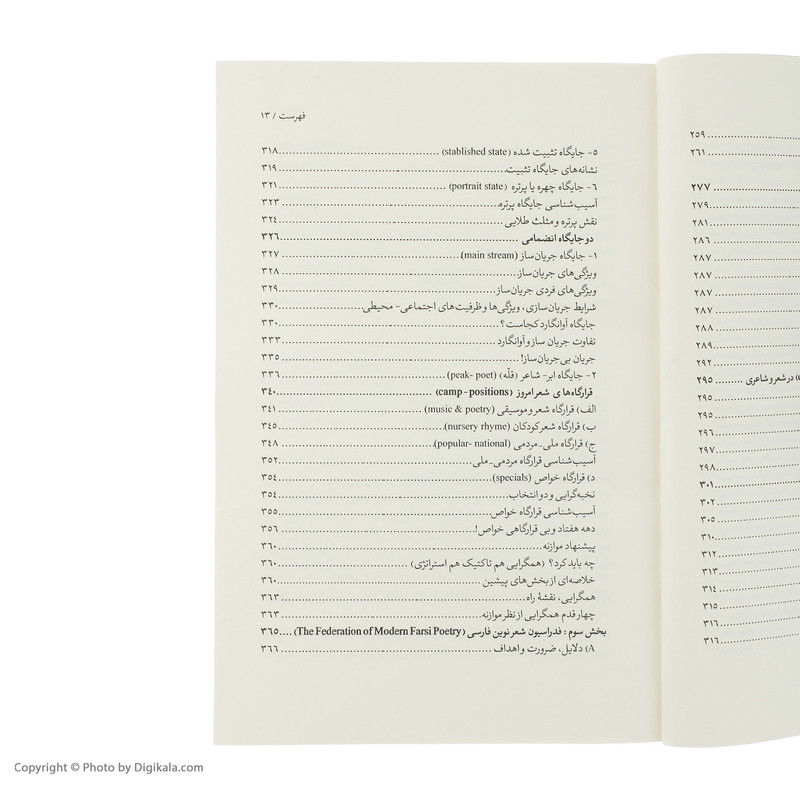 فهرست / ۱۳
۵- جایگاه تثبیت شده (stablished state) ................ ۳۱۸
نشانه‌های جایگاه تثبیت ................ ۳۱۹
۶- جایگاه چهره یا پرتره (portrait state) ................ ۳۲۱
آسیب‌شناسی جایگاه پرتره ................ ۳۲۳
نقش پرتره و مثلث طلایی ................ ۳۲۴
دو جایگاه انضمامی ................ ۳۲۶
۱- جایگاه جریان‌ساز (main stream) ................ ۳۲۷
ویژگی‌های جریان‌ساز ................ ۳۲۸
ویژگی‌های فردی جریان‌ساز ................ ۳۲۹
شرایط جریان‌سازی، ویژگی‌ها و ظرفیت‌های اجتماعی- محیطی ................ ۳۳۰
جایگاه آوانگارد کجاست؟ ................ ۳۳۰
تفاوت جریان ساز و آوانگارد ................ ۳۳۳
جریان بی‌جریان‌ساز! ................ ۳۳۵
۲- جایگاه ابر- شاعر (قلّه) (peak- poet) ................ ۳۳۶
قرارگاه‌های شعر امروز (camp - positions) ................ ۳۴۰
الف) قرارگاه شعر و موسیقی (music & poetry) ................ ۳۴۱
ب) قرارگاه شعر کودکان (nursery rhyme) ................ ۳۴۵
ج) قرارگاه ملی- مردمی (popular- national) ................ ۳۴۸
آسیب‌شناسی قرارگاه مردمی- ملی ................ ۳۵۲
د) قرارگاه خواص (specials) ................ ۳۵۴
نخبه‌گرایی و دو انتخاب ................ ۳۵۴
آسیب‌شناسی قرارگاه خواص ................ ۳۵۵
دهه هفتاد و بی قرارگاهی خواص! ................ ۳۵۶
پیشنهاد موازنه ................ ۳۶۰
چه باید کرد؟ (همگرایی هم تاکتیک هم استراتژی) ................ ۳۶۰
خلاصه‌ای از بخش‌های پیشین ................ ۳۶۰
همگرایی، نقشهٔ راه ................ ۳۶۳
چهار قدم همگرایی از نظر موازنه ................ ۳۶۳
بخش سوم : فدراسیون شعر نوین فارسی (The Federation of Modern Farsi Poetry) .... ۳۶۵
A) دلایل، ضرورت و اهداف ................ ۳۶۶
۲۵۹
۲۶۱
۲۷۷
۲۷۹
۲۸۱
۲۸۶
۲۸۷
۲۸۷
۲۸۷
۲۸۷
۲۸۸
۲۸۹
۲۹۲
در شعر و شاعری ........ ۲۹۵
۲۹۵
۲۹۵
۲۹۶
۲۹۷
۲۹۸
۳۰۱
۳۰۲
۳۰۵
۳۱۰
۳۱۲
۳۱۳
۳۱۴
۳۱۵
۳۱۶
۳۱۶
Copyright © Photo by Digikala.com